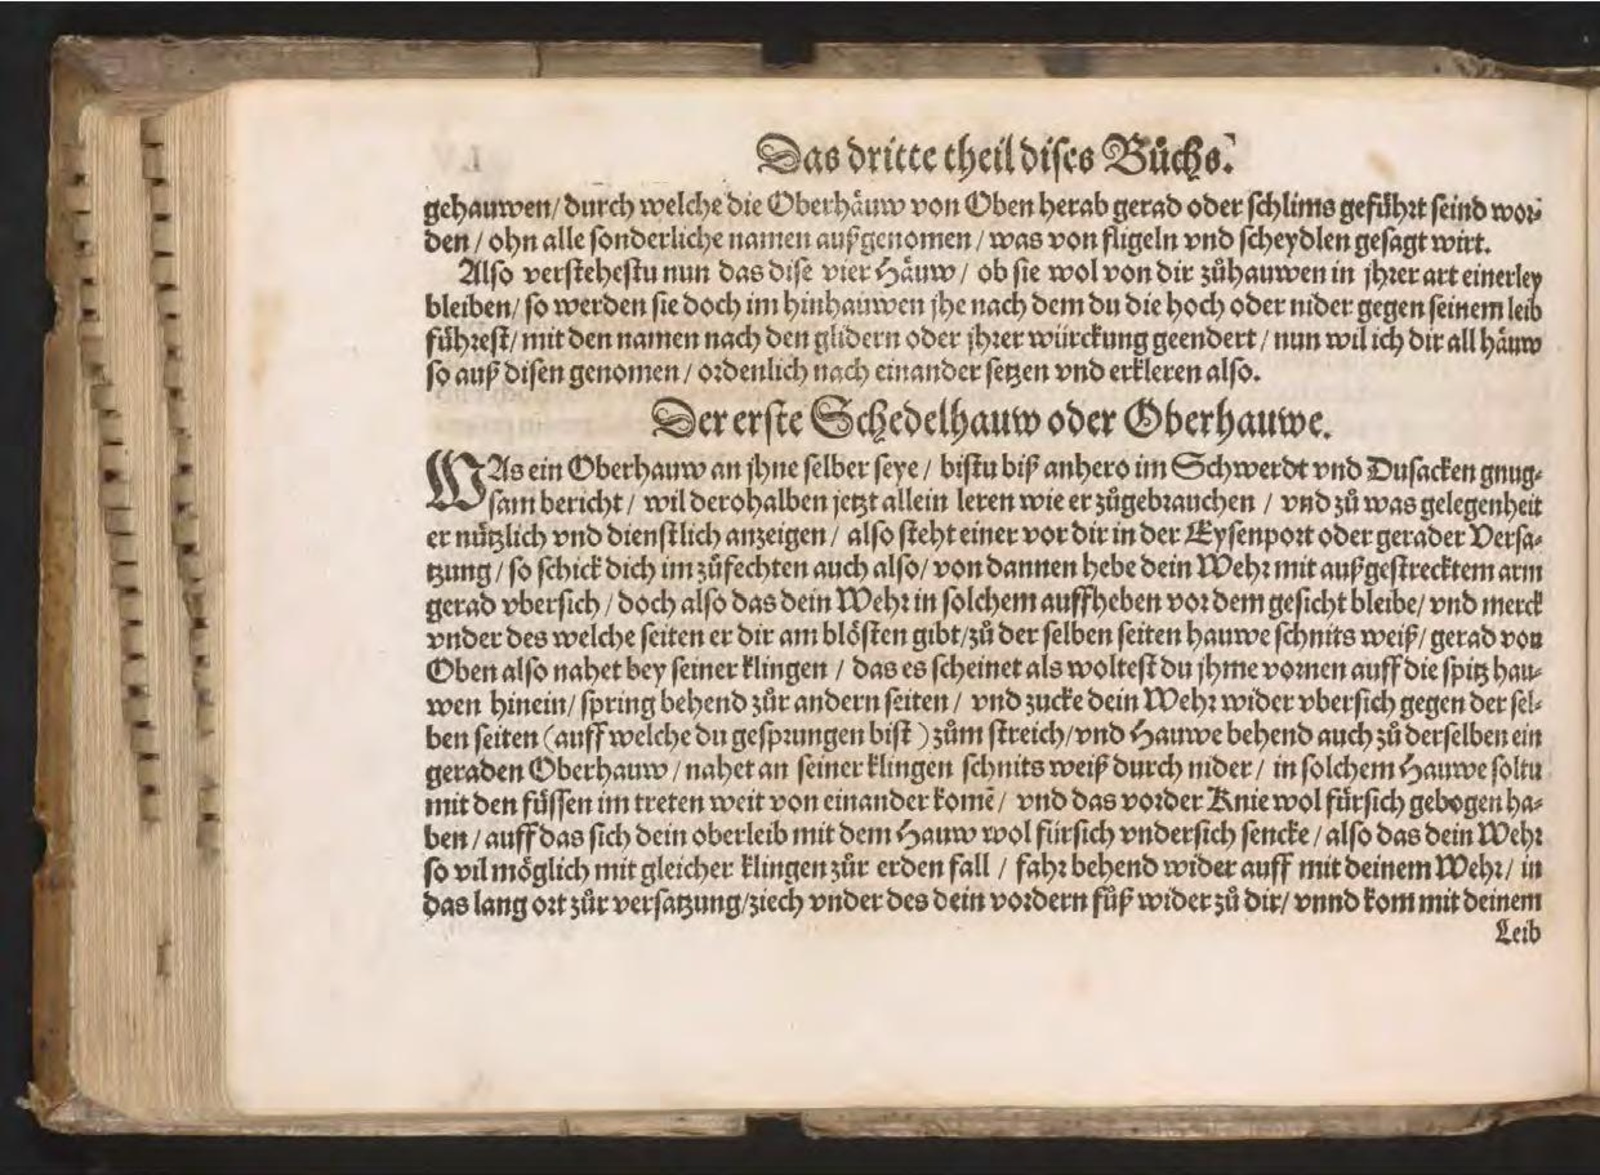 Das dritte theil dises Bůchs.
gehauwen/ durch welche die Oberhäuw von Oben herab gerad oder schlims geführt seind wor⸗
den / ohn alle sonderliche namen außgenomen / was von fligeln vnd scheydlen gesagt wirt.
Also verstehestu nun das dise vier Häuw / ob sie wol von dir zůhauwen in jhrer art einerley
bleiben/ so werden sie doch im hinhauwen jhe nach dem du die hoch oder nider gegen seinem leib
führest/ mit den namen nach den glidern oder jhrer würckung geendert / nun wil ich dir all häuw
so auß disen genomen / ordenlich nach einander setzen vnd erkleren also.
Der erste Schedelhauw oder Oberhauwe.
WAs ein Oberhauw an jhne selber seye / bistu biß anhero im Schwerdt vnd Dusacken gnug⸗
sam bericht / wil derohalben jetzt allein leren wie er zůgebrauchen / vnd zů was gelegenheit
er nützlich vnd dienstlich anzeigen / also steht einer vor dir in der Eysenport oder gerader Versa⸗
tzung / so schick dich im zůfechten auch also/ von dannen hebe dein Wehr mit außgestrecktem arm
gerad vbersich / doch also das dein Wehr in solchem auffheben vor dem gesicht bleibe/ vnd merck
vnder des welche seiten er dir am blösten gibt/ zů der selben seiten hauwe schnits weiß/ gerad von
Oben also nahet bey seiner klingen / das es scheinet als woltest du jhme vornen auff die spitz hau⸗
wen hinein/ spring behend zůr andern seiten / vnd zucke dein Wehr wider vbersich gegen der sel⸗
ben seiten (auff welche du gesprungen bist) zům streich/ vnd Hauwe behend auch zů derselben ein
geraden Oberhauw / nahet an seiner klingen schnits weiß durch nider / in solchem Hauwe soltu
mit den füssen im treten weit von einander komē / vnd das vorder Knie wol fürsich gebogen ha⸗
ben / auff das sich dein oberleib mit dem Hauw wol fürsich vndersich sencke / also das dein Wehr
so vil möglich mit gleicher klingen zůr erden fall / fahr behend wider auff mit deinem Wehr/ in
das lang ort zůr versatzung/ ziech vnder des dein vordern fůß wider zů dir/ vnnd kom mit deinem
Leib